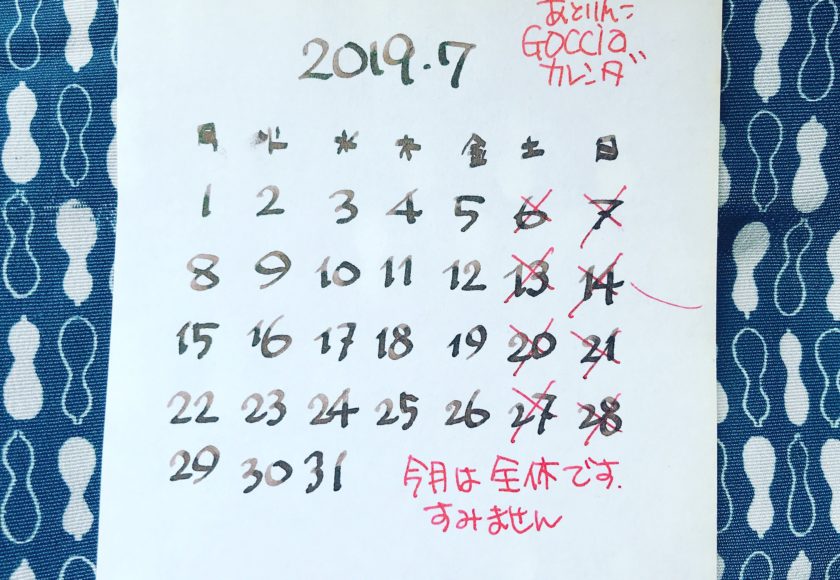 あとりえ
Goccia
カレンダー
2019.7
月 火 水 木 金 土 日
1 2 3 4 5 6 7
8 9 10 11 12 13 14
15 16 17 18 19 20 21
22 23 24 25 26 27 28
29 30 31
今月は全休です.
すみません